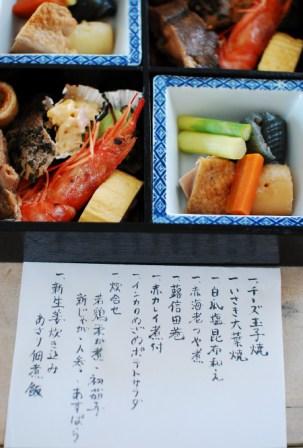 一、チーズ玉子焼
一、いさき大葉焼
一、白瓜塩昆布和え
一、赤海老つや煮
一、蕗信田巻
一、赤カレイ煮付
一、インカのめざめポテトサラダ
一、炊合せ
若鶏
新じゃが・人参・あすぱら
一、新生姜炊き込み
あさり佃煮飯